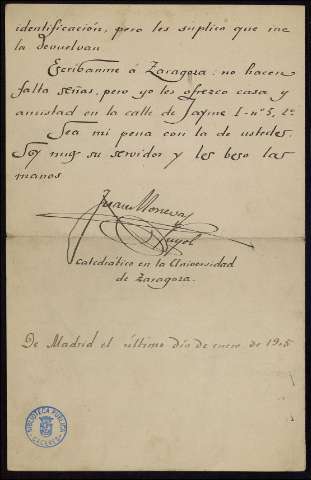 identificación, pero les suplico que me
la devuelvan
Escríbanme á Zaragoza: no hacen
falta señas, pero yo les ofrezco casa y
amistad en la calle de Jayme I - nº 5, 2º
Sea mi pena con la de ustedes.
Soy muy su servidor y les beso las
manos
Juan Moneva
y Puyol
catedrático en la Universidad
de Zaragoza.
De Madrid el último día de enero de 1905
BIBLIOTECA PUBLICA
CACERES